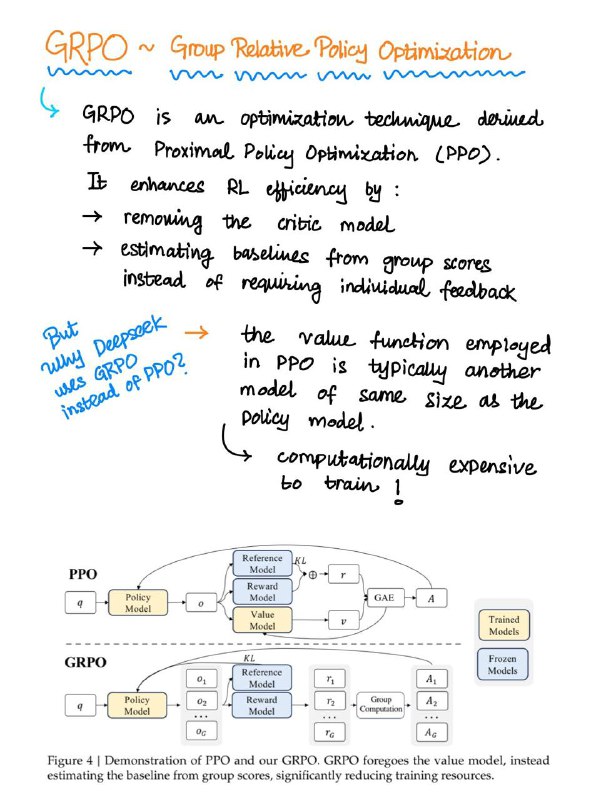 GRPO ~ Group Relative Policy Optimization
GRPO is an optimization technique derived
from Proximal Policy Optimization (PPO).
It enhances RL efficiency by :
→ removing the critic model
→ estimating baselines from group scores
instead of requiring individual feedback
But
why Deepseek
uses GRPO
instead of PPO?
→ the value function employed
in PPO is typically another
model of same size as the
policy model.
computationally expensive
to train !
PPO
q
Policy
Model
o
Reference
Model
KL
Reward
Model
Value
Model
⊕
r
v
GAE
A
Trained
Models
Frozen
Models
GRPO
q
Policy
Model
o1
o2
...
oG
KL
Reference
Model
Reward
Model
r1
r2
...
rG
Group
Computation
A1
A2
...
AG
Figure 4 | Demonstration of PPO and our GRPO. GRPO foregoes the value model, instead
estimating the baseline from group scores, significantly reducing training resources.